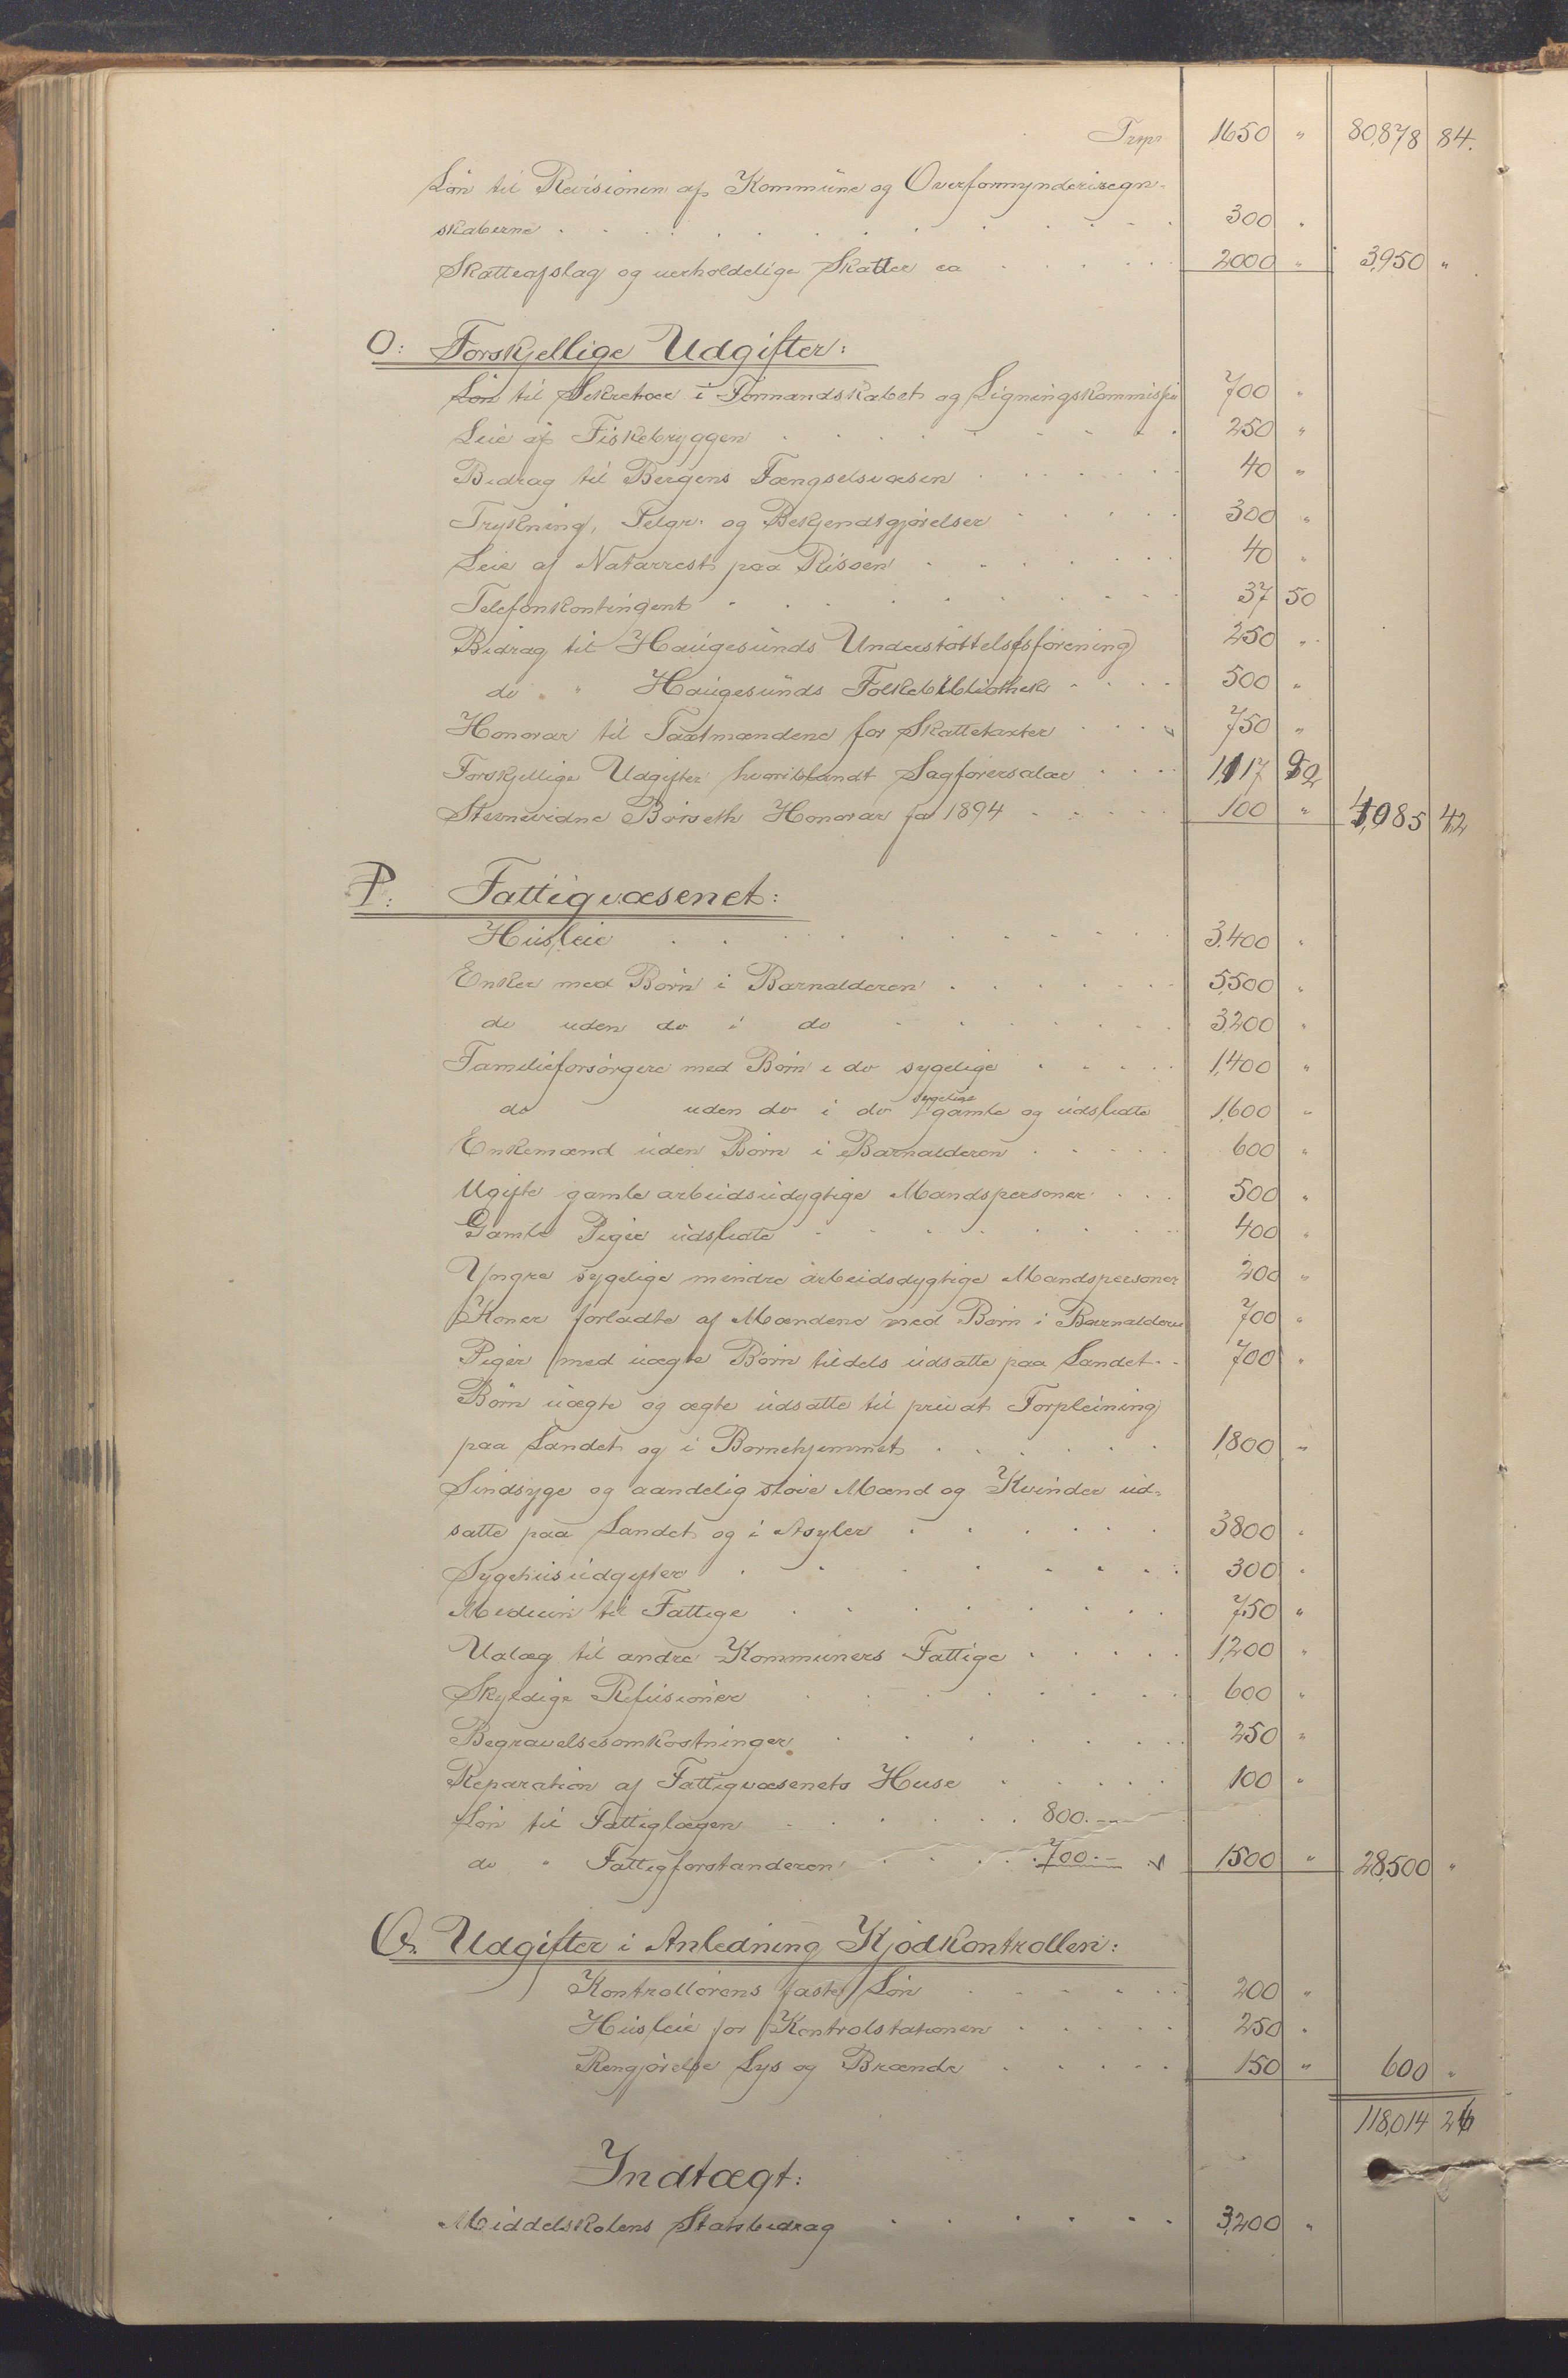 Trsp. 1650 " 80,878 84.
Løn til Revisionen af Kommune og Overformynderiregn-
skaberne . . . 300 "
Skatteafslag og uerholdelige Skatter ca . . . 2000 " 3,950 "
O: Forskjellige Udgifter:
Løn til Sekretær i Formandskabet og Ligningskommissi 700 "
Leie af Fiskebryggen . . . 250 "
Bidrag til Bergens Fængselsvæsen . . . 40 "
Trykning, Telgr. og Bekjendtgjørelser . . . 300 "
Leie af Natarrest paa Risøen . . . 40 "
Telefonkontingent . . . 37 50
Bidrag til Haugesunds Understøttelsesforening 250 "
do " Haugesunds Folkebibliothek . . . 500 "
Honorar til Taxtmændene for Skattetaxter . . . 750 "
Forskjellige Udgifter hvoriblandt Sagførersalær . . . 1,117 92
Stevnevidne Børseth Honorar for 1894 . . . 100 " 4,085 42
P. Fattigvæsenet:
Husleie . . . 3,400 "
Enker med Børn i Barnalderen . . . 5,500 "
do uden do i do . . . 3,200 "
Familieforsørgere med Børn i do sygelige . . . 1,400 "
do uden do i do sygelige gamle og udslidte 1,600 "
Enkemænd uden Børn i Barnalderen . . . 600 "
Ugifte gamle arbeidsudygtige Mandspersoner . . . 500 "
Gamle Piger udslidte . . . 400 "
Yngre sygelige mindre arbeidsdygtige Mandspersoner 200 "
Koner forladte af Mændene med Børn i Barnalderen 700 "
Piger med uægte Børn tildels udsatte paa Landet . . 700 "
Børn uægte og ægte udsatte til privat Forpleining
paa Landet og i Børnehjemmet . . . 1,800 "
Sindsyge og aandelig sløve Mænd og Kvinder ud-
satte paa Landet og i Asyler . . . 3800 "
Sygehusudgifter . . . 300 "
Medicin til Fattige . . . 750 "
Udlæg til andre Kommuners Fattige . . . 1,200 "
Skyldige Refusioner . . . 600 "
Begravelsesomkostninger . . . 250 "
Reparation af Fattigvæsenets Huse . . . 100 "
Løn til Fattiglægen . . . 800.—
do " Fattigforstanderen . . . 700.— 1,500 " 28,500 "
Q. Udgifter i Anledning Kjødkontrollen:
Kontrollørens faste Løn . . . 200 "
Husleie for Kontrolstationen . . . 250 "
Rengjørelse Lys og Brænde . . . 150 " 600 "
118,014 26
Indtægt:
Middelskolens Statsbidrag . . . 3,200 "